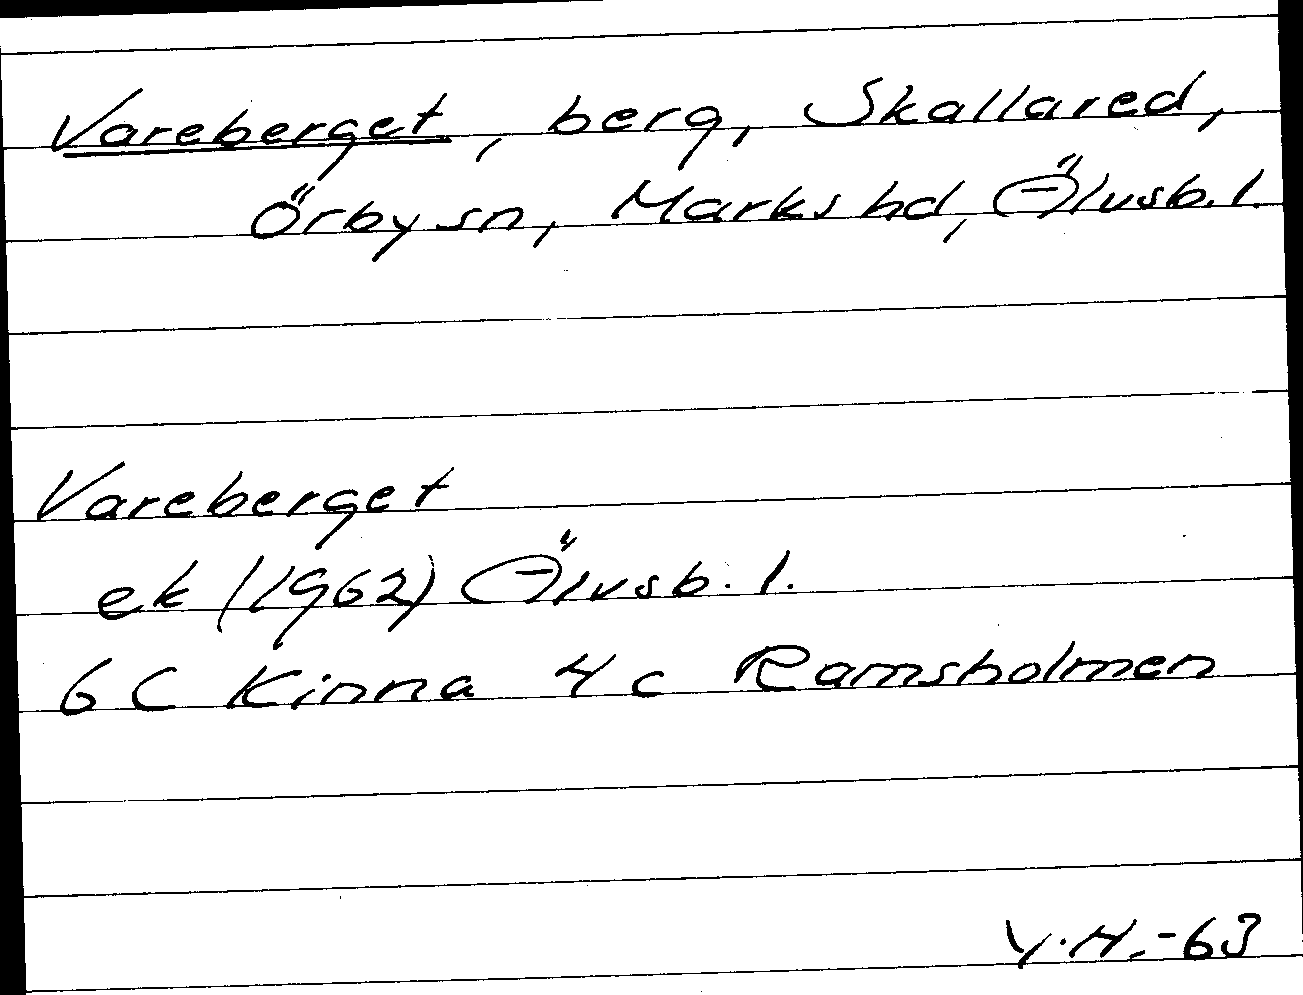 Vareberget, berg, Skallared,
Örby sn, Marks hd, Älvsb. l.
Vareberget
ek (1962) Älvsb. l.
6 C Kinna 4 c Ramsholmen
Y.H.-63